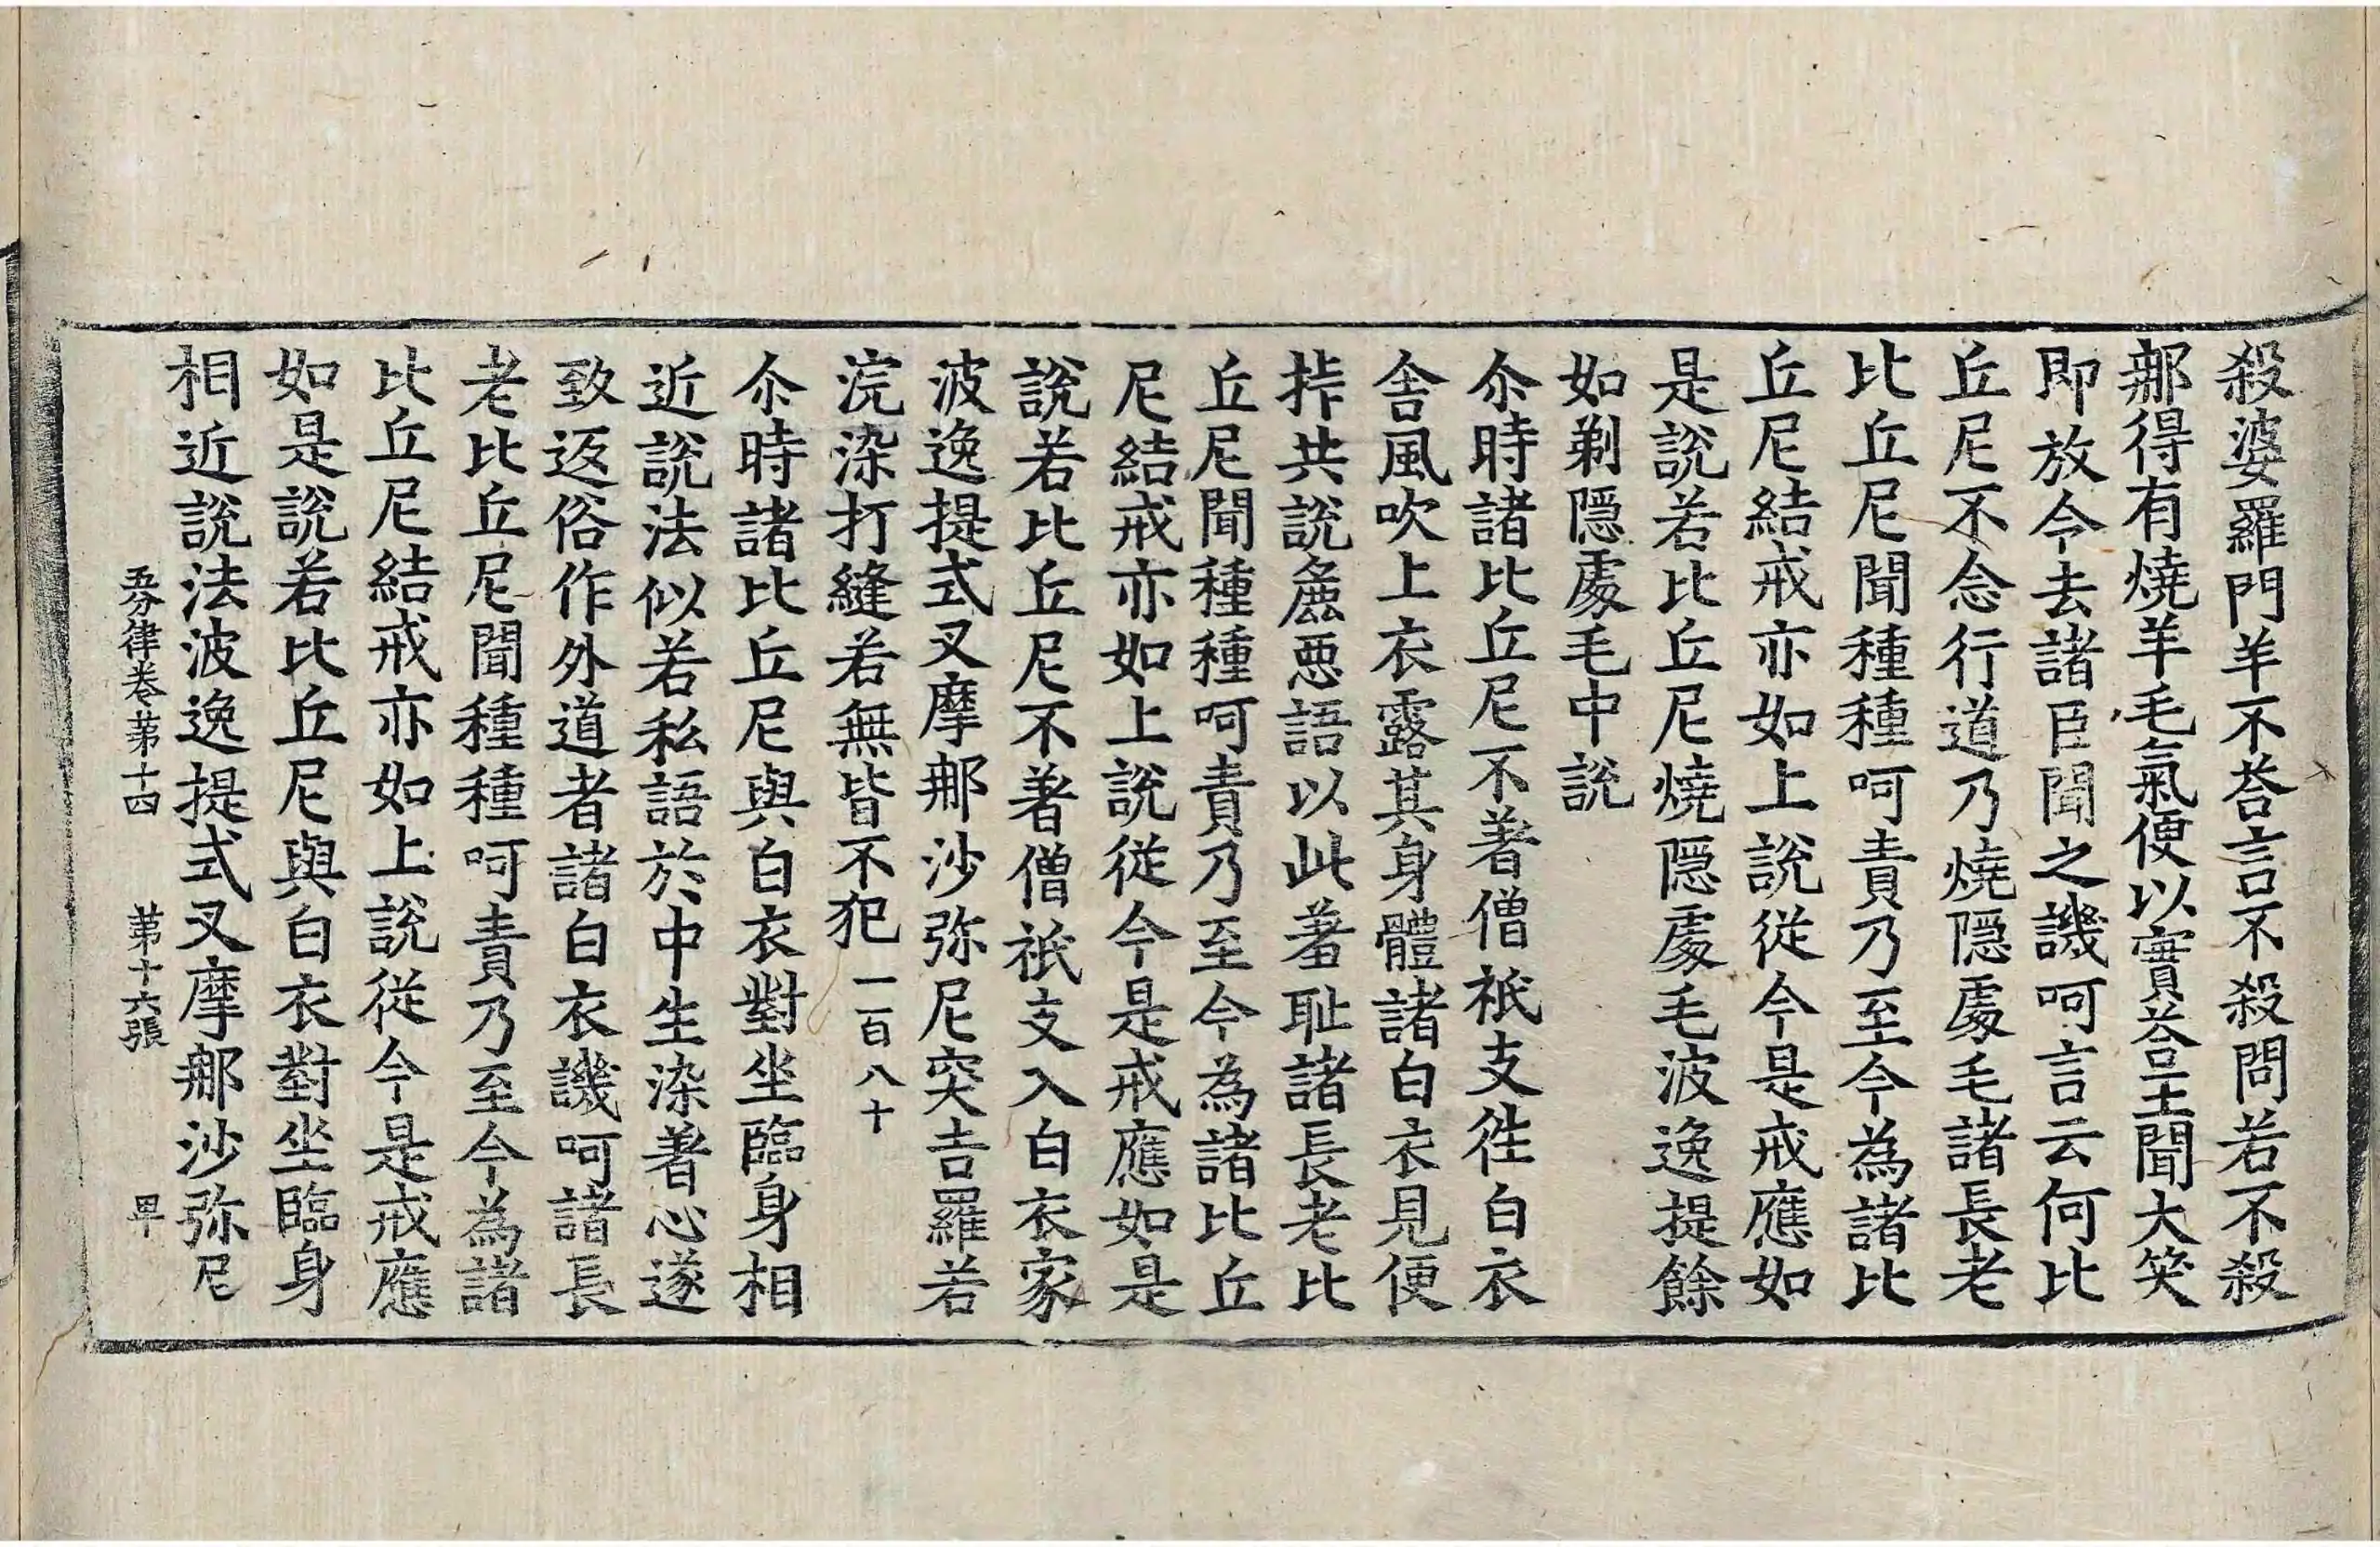 殺婆羅門羊不荅言不殺問若不殺
那得有燒羊毛氣便以實荅王聞大笑
即放令去諸臣聞之譏呵言云何比
丘尼不念行道乃燒隠處毛諸長老
比丘尼聞種種呵責乃至今為諸比
丘尼結戒亦如上說從今是戒應如
是說若比丘尼燒隠處毛波逸提餘
如剃隠處毛中說
尒時諸比丘尼不著僧祇支徃白衣
舎風吹上衣露其身體諸白衣見便
拃共說麁惡語以此羞耻諸長老比
丘尼聞種種呵責乃至今為諸比丘
尼結戒亦如上說從今是戒應如是
說若比丘尼不著僧祇支入白衣家
波逸提式叉摩那沙弥尼突吉羅若
浣染打縫若無皆不犯一百八十
尒時諸比丘尼與白衣對坐臨身相
近說法似若私語於中生染著心遂
致返俗作外道者諸白衣譏呵諸長
老比丘尼聞種種呵責乃至今為諸
比丘尼結戒亦如上說從今是戒應
如是說若比丘尼與白衣對坐臨身
相近說法波逸提式叉摩那沙弥尼
五分律卷苐十四 苐十六張